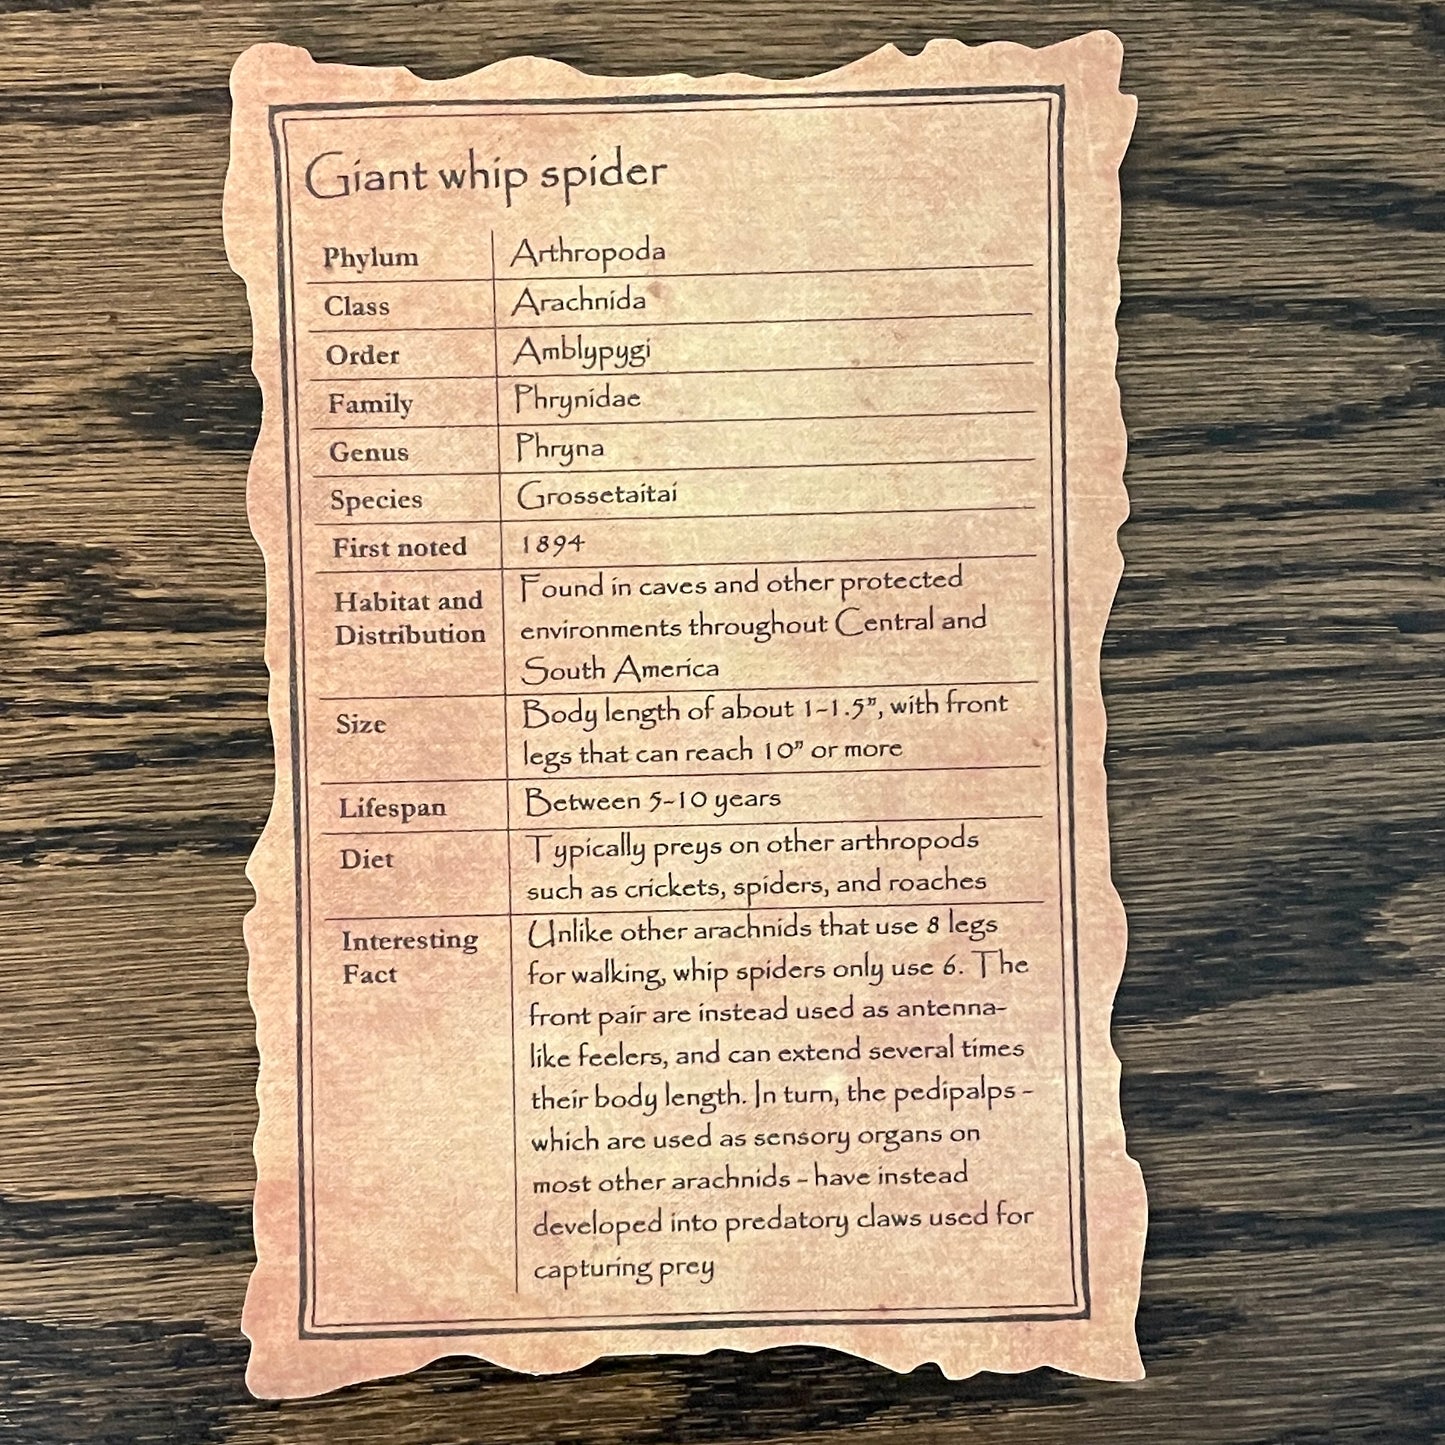 Giant whip spider
Phylum Arthropoda
Class Arachnida
Order Amblypygi
Family Phrynidae
Genus Phryna
Species Grossetaitai
First noted 1894
Habitat and Distribution Found in caves and other protected
environments throughout Central and
South America
Size Body length of about 1-1.5", with front
legs that can reach 10" or more
Lifespan Between 5-10 years
Diet Typically preys on other arthropods
such as crickets, spiders, and roaches
Interesting Fact Unlike other arachnids that use 8 legs
for walking, whip spiders only use 6. The
front pair are instead used as antenna-
like feelers, and can extend several times
their body length. In turn, the pedipalps -
which are used as sensory organs on
most other arachnids - have instead
developed into predatory claws used for
capturing prey